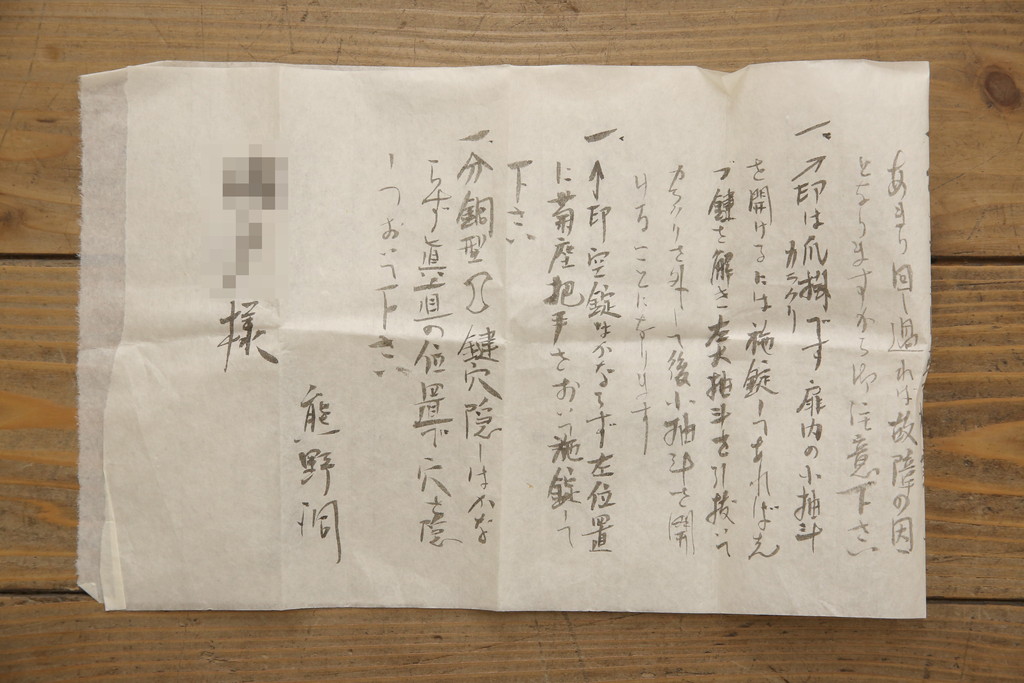 あまり回し過れば故障の因
となりますから御注意下さい
一、↗印は爪掛です 扉内の小抽斗
カラクリ
を開けるには施錠してあれば先
づ鍵を解き左大抽斗を引抜いて
カラクリを外して後小抽斗を開
けることになります
一、↑印空錠はかならず左位置
に菊座把手をおいて施錠して
下さい
一、分銅型 鍵穴隠しはかな
らず真直の位置で穴を隠
しておいて下さい
熊野洞
様